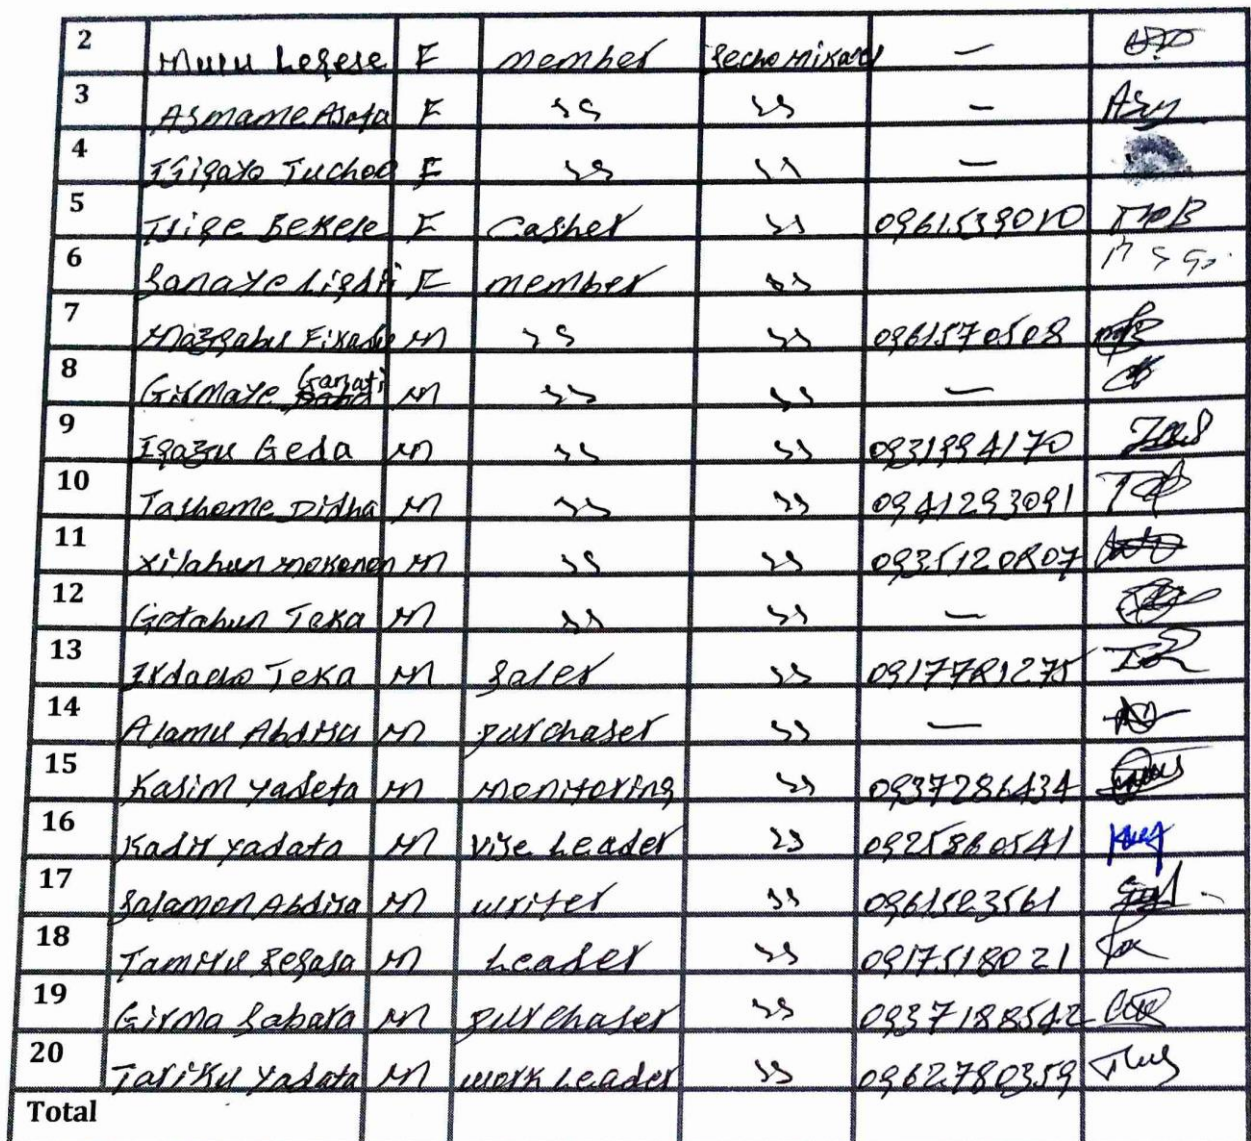 2 Mulu Legese F member Gecho Mikael —
3 Asmame Asefa F " " —
4 Tuchoo F " " —
5 Tsige Bekele F Casher " 0961539010
6 Sanaye F member "
7 Mazgabu Fikadu M " " 0961570508
8 Girmaye Ganati M " " —
9 Iqazu Geda M " " 0931994170
10 Tashome Didha M " " 0941293091
11 Xilahun mokonen M " " 0935120807
12 Getahun Teka M " " —
13 Teka M Saler " 0917781275
14 Alamu Abdisa M purchaser " —
15 Kasim Yadeta M monitoring " 0937286434
16 Kadir Yadata M Vise Leader " 0925860541
17 Salamon Abdisa M writer " 0961523561
18 Tamiru Regasa M Leader " 0917518021
19 Girma Sabara M purchaser " 0937188542
20 Tariku Yadata M work Leader " 0962780359
Total